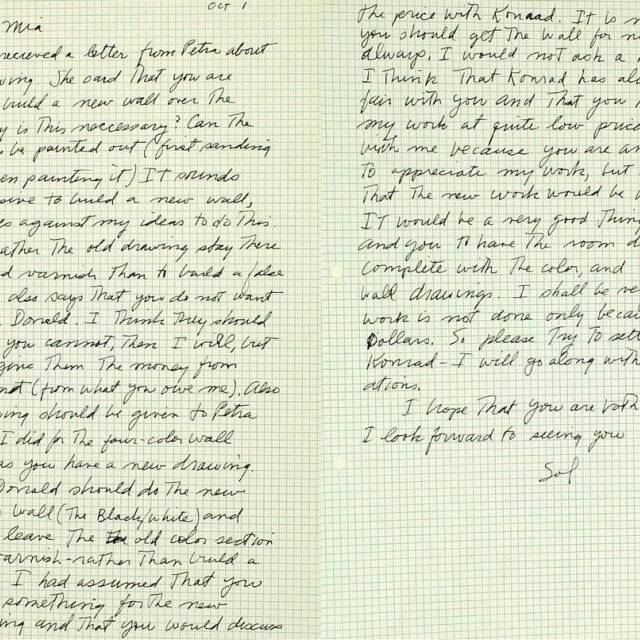 OCT 1
Mia
recieved a letter from Petra about
wing. She said That you are
build a new wall over The
y is This neccessary? Can The
be painted out (first sanding
en painting it) IT sounds
sive to build a new wall,
es against my ideas to do This.
ather The old drawing stay There
d varnish Than to build a false
also says That you do not want
Donald. I Think They should
you cannot, Then I will, but
give Them The money from
(from what you owe me). Also
ing should be given to Petra
I did for The four-color wall
as you have a new drawing.
Donald should do The new
wall (The Black/white) and
leave The old color section
varnish-rather Than build a
I had assumed That you
something for The new
ing and That you would discuss
The price with Konrad. IT is n
you should get The wall for n
always. I would not ask a
I Think That Konrad has al
fair with you and That you
my work at quite low price
with me because you are an
To appreciate my work, but
That The new work would be
IT would be a very good Thing
and you To have The room d
complete with The color, and
wall drawings. I shall be ve
work is not done only becau
Dollars. So please Try To sett
Konrad - I will go along with
ations.
I hope That you are both
I look forward to seeing you
Sol